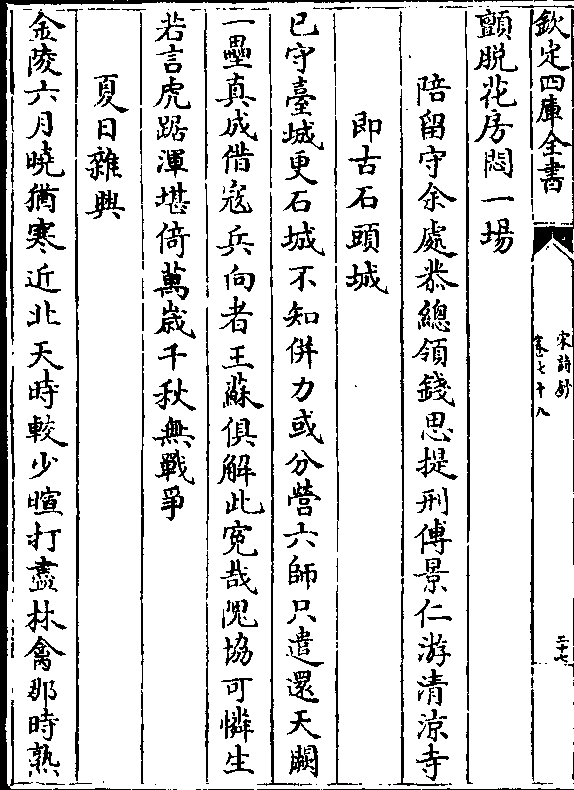 欽定四庫全書
宋詩鈔
卷七十八
二十七
顫脱花房悶一場
陪留守余處恭總領錢思提刑傅景仁游清涼寺
即古石頭城
已守臺城更石城不知併力或分營六師只遣還天闕
一壘真成借寇兵向者王蘇俱解此寃哉隗協可憐生
若言虎踞渾堪倚萬歳千秋無戰爭
夏日雜興
金陵六月曉猶寒近北天時較少暄打盡林禽那時熟